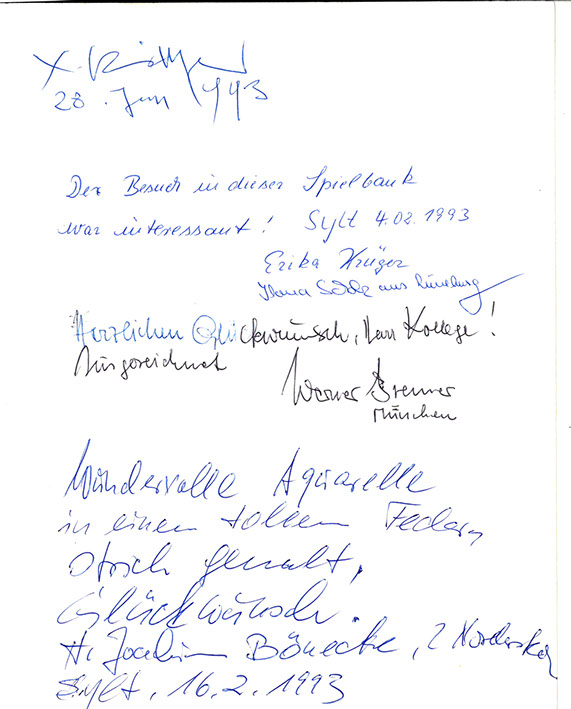 28. Jan 1993
Der Besuch in dieser Spielbank
war interessant! Sylt 4.02.1993
Erika Krüger
aus Lüneburg
Herzlichen Glückwunsch, Herr Kollege!
Ausgezeichnet
Werner Bremer
München
Wundervolle Aquarelle
in einem tollen Feder,
strich gemalt,
Glückwunsch.
H. Joachim Bönecke,
Sylt, 16.2.1993